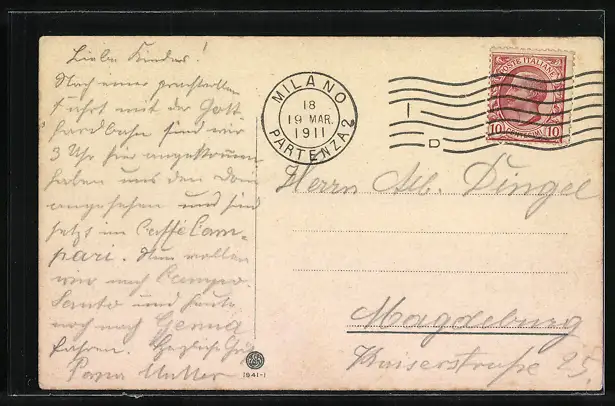 Liebe Kinder!
Nach einer prachtvollen
Fahrt mit der Gott
hardbahn sind wir
3 Uhr hier angekommen
haben uns den Dom
angesehen und sind
jetzt im Caffé Cam-
pari. Nun wollen
wir nach Campo
Santo und heute
noch nach Genua
fahren. Herzliche Grüße
Papa Mutter
MILANO
18
19 MAR.
1911
PARTENZA 2
I
D
POSTE ITALIANE
10 10
Herrn Alb. Dingel
Magdeburg
Kaiserstraße 25.
1641-1